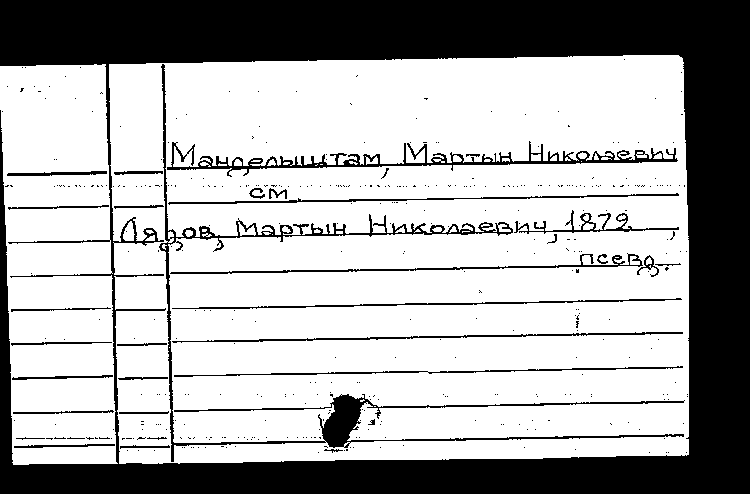 Мандельштам, Мартын Николаевич
см.
Лядов, Мартын Николаевич, 1872,
псевд.